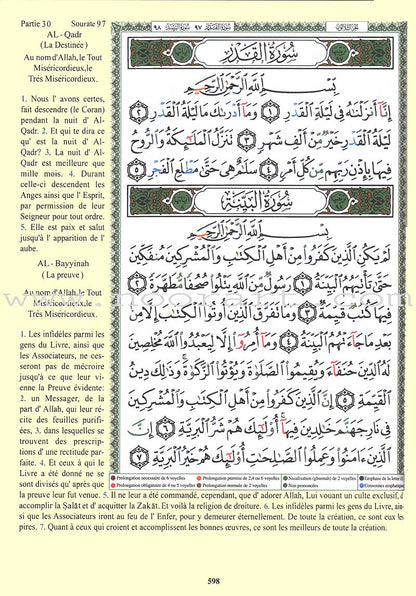 Partie 30 Sourate 97
AL - Qadr
(La Destinée)
Au nom d'Allah, le Tout
Miséricordieux, le
Trés Miséricordieux.
1. Nous l' avons certes,
fait descendre (le Coran)
pendant la nuit d' Al-
Qadr. 2. Et qui te dira ce
qu' est la nuit d' Al-
Qadr? 3. La nuit d' Al-
Qadr est meilleure que
mille mois. 4. Durant
celle-ci descendent les
Anges ainsi que l' Esprit,
par permission de leur
Seigneur pour tout ordre.
5. Elle est paix et salut
jusqu'à l' apparition de l'
aube.
AL - Bayyinah
(La preuve)
Au nom d'Allah, le Tout
Miséricordieux, le
Trés Miséricordieux.
1. Les infidèles parmi les
gens du Livre, ainsi que
les Associateurs, ne ces-
seront pas de mécroire
jusqu'à ce que leur vi-
enne la Preuve évidente:
2. un Messager, de la
part d' Allah, qui leur ré-
cite des feuilles purifi-
ées, 3. dans lesquelles se
trouvent des prescrip-
tions d' une rectitude par-
faite. 4. Et ceux à qui le
Livre a été donné ne se
sont divisés qu' après que
la preuve leur fut venue. 5. Il ne leur a été commandé, cependant, que d' adorer Allah, Lui vouant un culte exclusif, d'
accomplir la Ṣalāt et d' acquitter la Zakāt. Et voilà la religion de droiture. 6. Les infidèles parmi les gens du Livre, ain-
si que les Associateurs iront au feu de l' Enfer, pour y demeurer éternellement. De toute la création, ce sont eux les
pires. 7. Quant à ceux qui croient et accomplissent les bonnes œuvres, ce sont les meilleurs de toute la création.
سُورَةُ القَدْرِ
بِسْمِ ٱللَّهِ ٱلرَّحْمَٰنِ ٱلرَّحِيمِ
إِنَّا أَنزَلْنَٰهُ فِي لَيْلَةِ ٱلْقَدْرِ ١ وَمَا أَدْرَىٰكَ مَا لَيْلَةُ ٱلْقَدْرِ ٢
لَيْلَةُ ٱلْقَدْرِ خَيْرٌ مِّنْ أَلْفِ شَهْرٍ ٣ تَنَزَّلُ ٱلْمَلَٰٓئِكَةُ وَٱلرُّوحُ
فِيهَا بِإِذْنِ رَبِّهِم مِّن كُلِّ أَمْرٍ ٤ سَلَٰمٌ هِيَ حَتَّىٰ مَطْلَعِ ٱلْفَجْرِ ٥
سُورَةُ البَيِّنَةِ
بِسْمِ ٱللَّهِ ٱلرَّحْمَٰنِ ٱلرَّحِيمِ
لَمْ يَكُنِ ٱلَّذِينَ كَفَرُوا۟ مِنْ أَهْلِ ٱلْكِتَٰبِ وَٱلْمُشْرِكِينَ مُنفَكِّينَ
حَتَّىٰ تَأْتِيَهُمُ ٱلْبَيِّنَةُ ١ رَسُولٌ مِّنَ ٱللَّهِ يَتْلُوا۟ صُحُفًا مُّطَهَّرَةً ٢
فِيهَا كُتُبٌ قَيِّمَةٌ ٣ وَمَا تَفَرَّقَ ٱلَّذِينَ أُوتُوا۟ ٱلْكِتَٰبَ إِلَّا مِنۢ
بَعْدِ مَا جَآءَتْهُمُ ٱلْبَيِّنَةُ ٤ وَمَا أُمِرُوٓا۟ إِلَّا لِيَعْبُدُوا۟ ٱللَّهَ مُخْلِصِينَ
لَهُ ٱلدِّينَ حُنَفَآءَ وَيُقِيمُوا۟ ٱلصَّلَوٰةَ وَيُؤْتُوا۟ ٱلزَّكَوٰةَ وَذَٰلِكَ دِينُ
ٱلْقَيِّمَةِ ٥ إِنَّ ٱلَّذِينَ كَفَرُوا۟ مِنْ أَهْلِ ٱلْكِتَٰبِ وَٱلْمُشْرِكِينَ
فِي نَارِ جَهَنَّمَ خَٰلِدِينَ فِيهَآ أُو۟لَٰٓئِكَ هُمْ شَرُّ ٱلْبَرِيَّةِ ٦ إِنَّ
ٱلَّذِينَ ءَامَنُوا۟ وَعَمِلُوا۟ ٱلصَّٰلِحَٰتِ أُو۟لَٰٓئِكَ هُمْ خَيْرُ ٱلْبَرِيَّةِ ٧
Prolongation nécessaire de 6 voyelles
Prolongation permise de 2,4 ou 6 voyelles
Nasalisation (ghunnah) de 2 voyelles
Emphase de la lettre
Prolongation obligatoire de 4 ou 5 voyelles
Prolongation normale de 2 voyelles
Non prononcées
Consonnes emphatiques
598